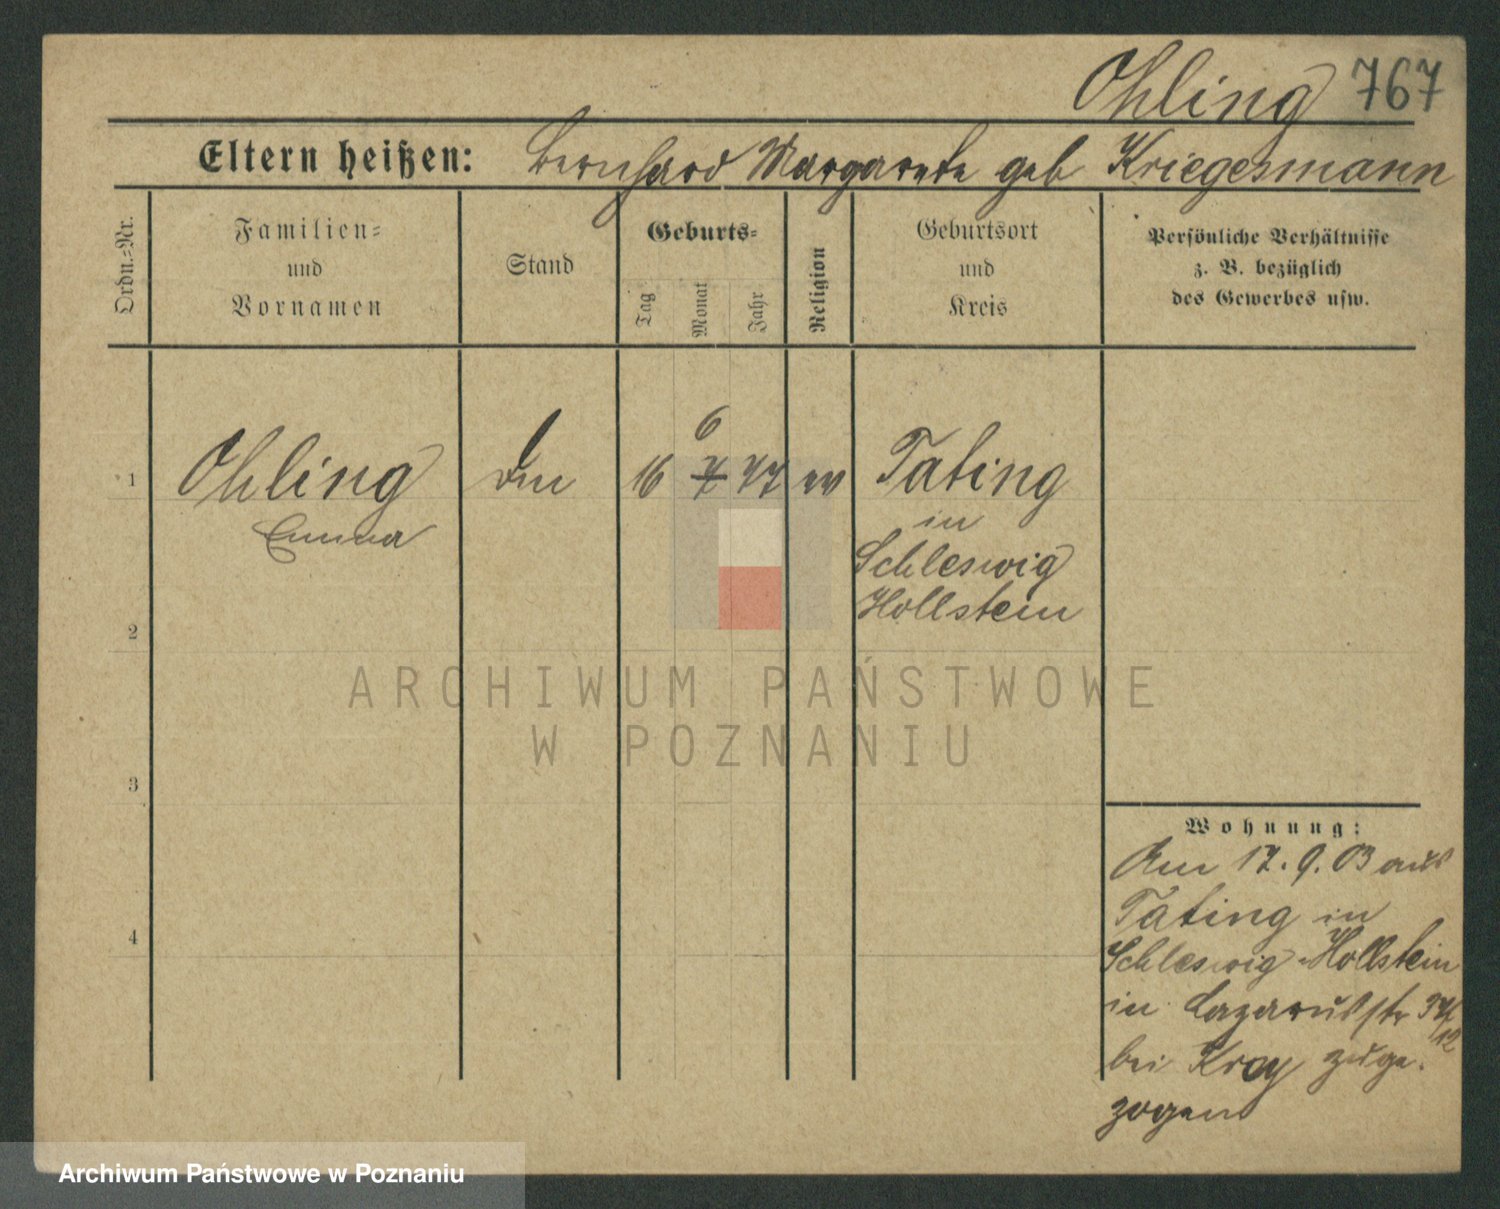 Ohling 767
Eltern heißen: Bernhard Margarete geb Kriegesmann
Ordn.-Nr.
Familien-
und
Vornamen
Stand
Geburts-
Tag
Monat
Jahr
Religion
Geburtsort
und
Kreis
Persönliche Verhältnisse
z. B. bezüglich
des Gewerbes usw.
6
1 Ohling 16 7 77 ev Tating
Emma in
Schleswig
Hollstein
2
ARCHIWUM PAŃSTWOWE
W POZNANIU
3
Wohnung:
Am 17.9.03 aus
Tating in
4
Schleswig-Hollstein
in Lazarusstr
12
bei Kroy zuge.
zogen
Archiwum Państwowe w Poznaniu